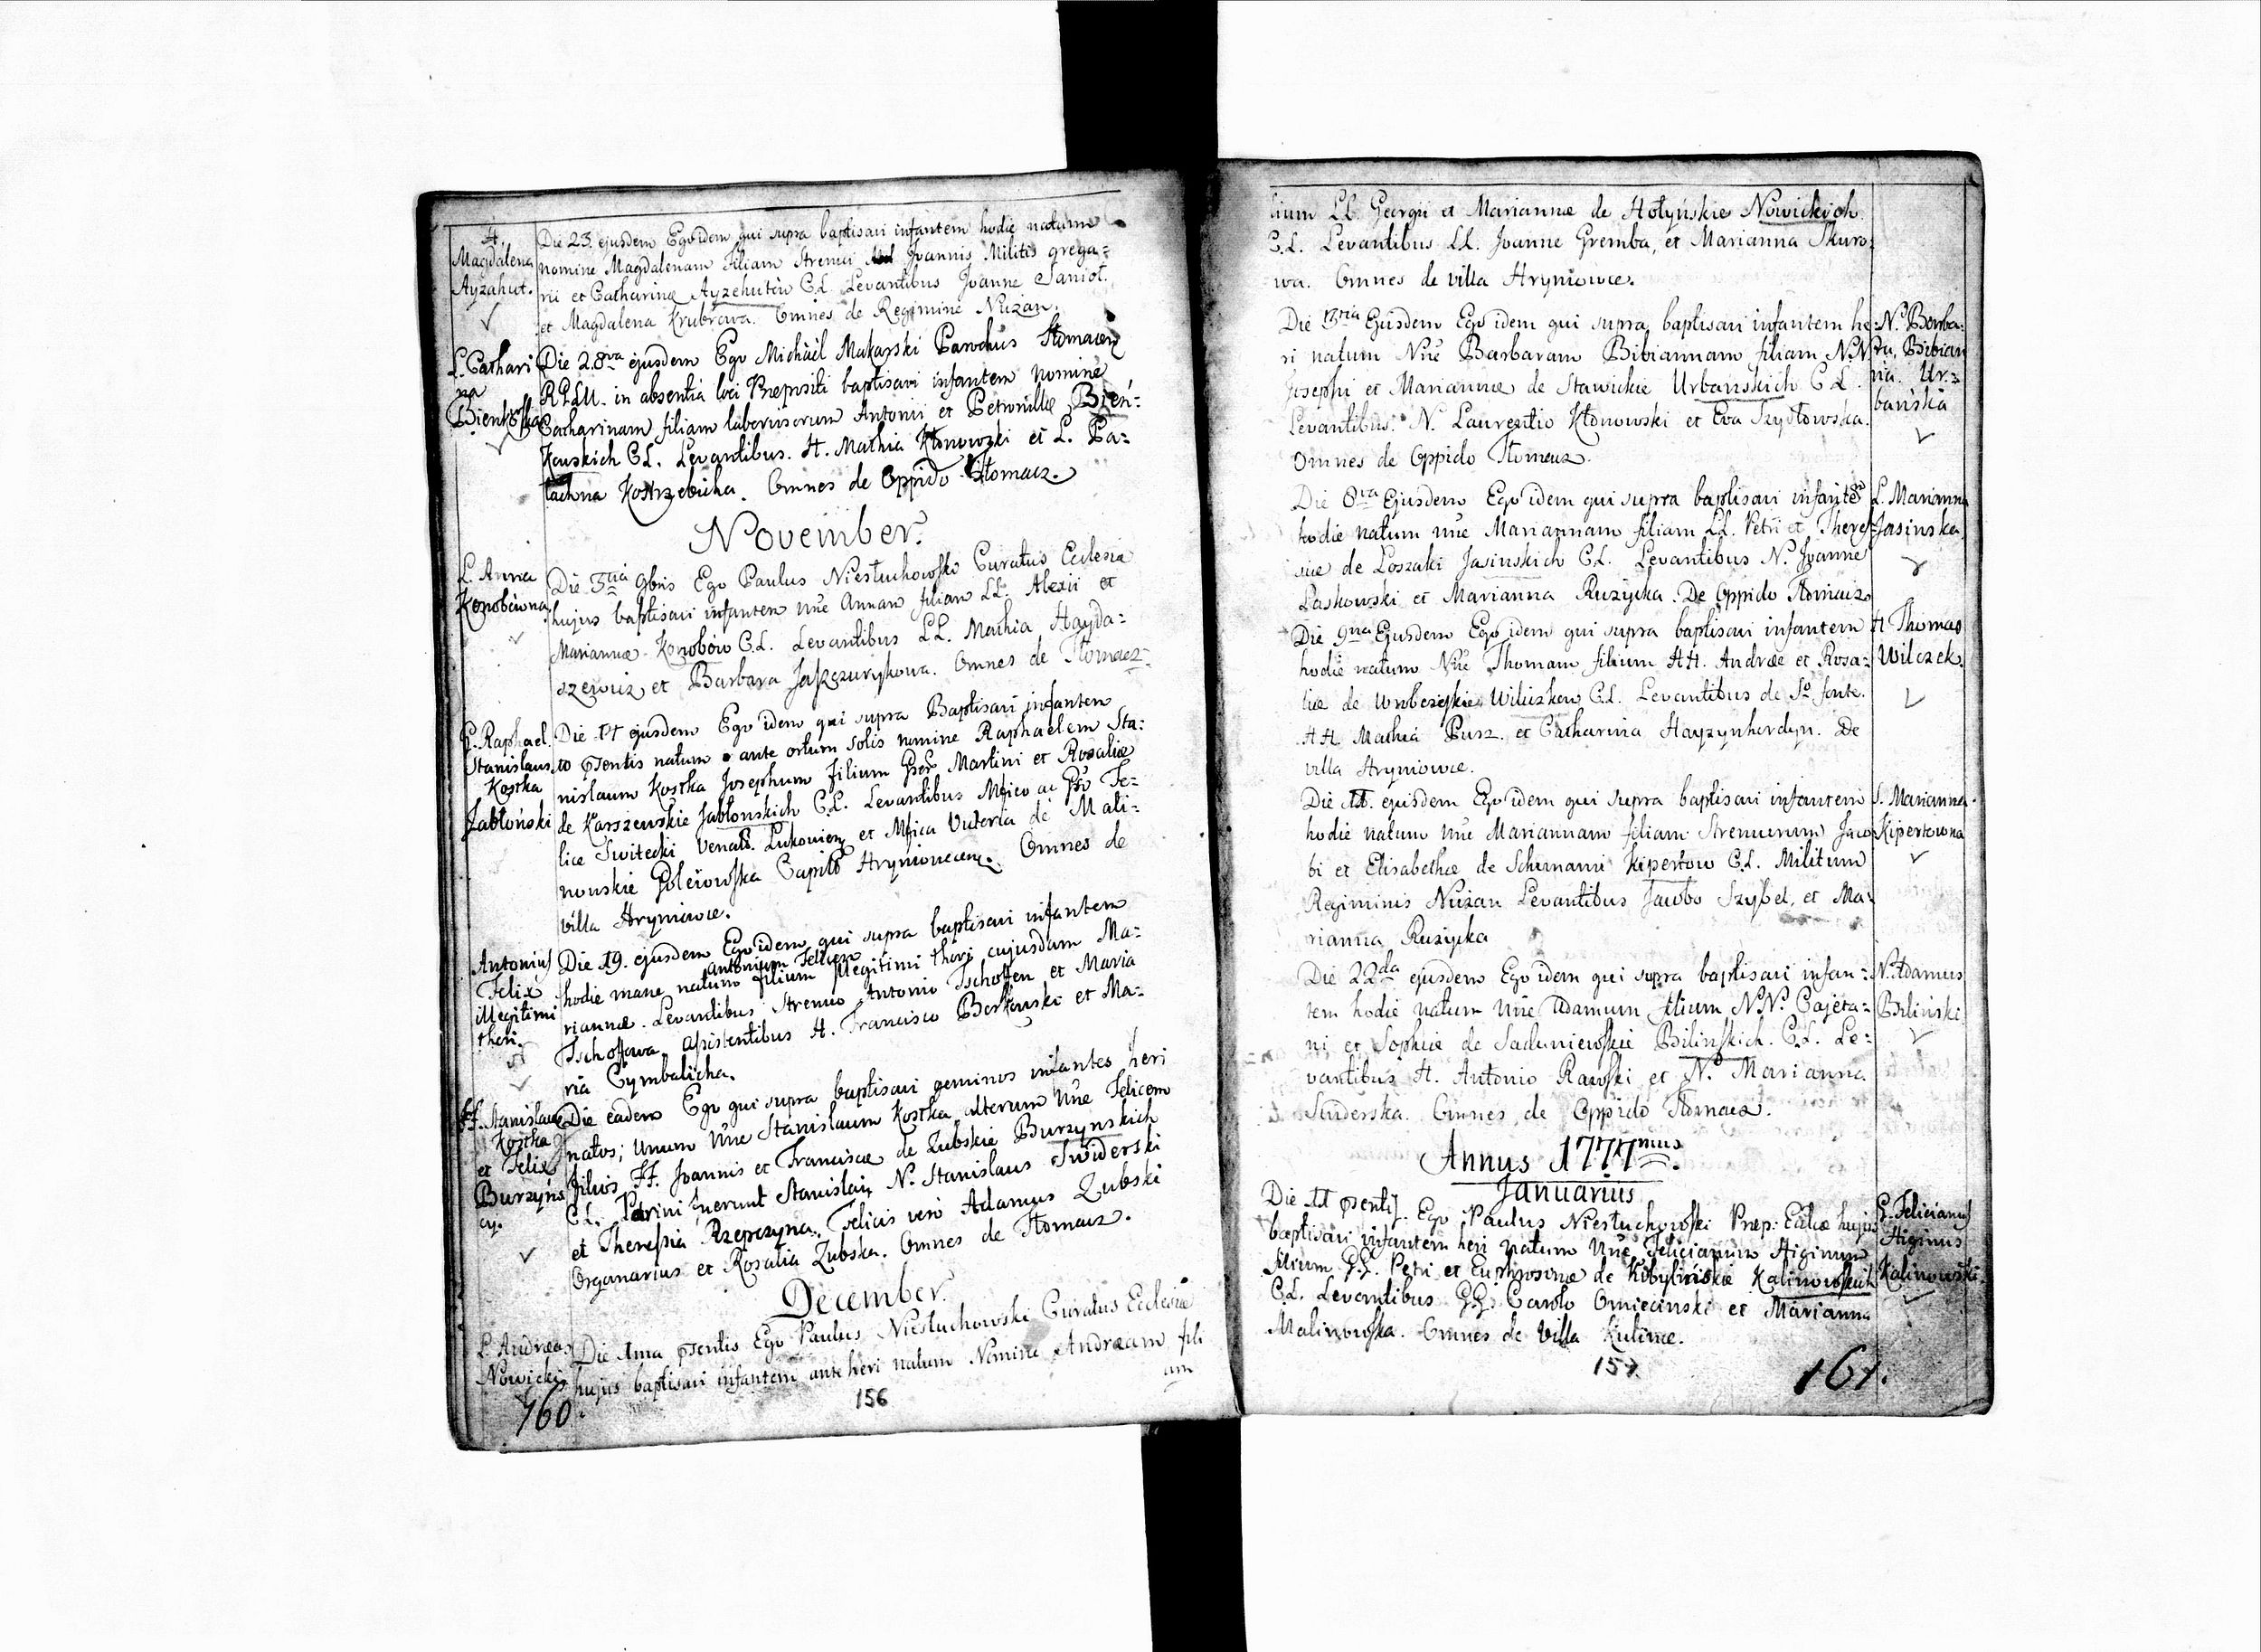 H.
Magdalena
Ayzahut.
Die 23. ejusdem Ego idem qui supra baptisavi infantem hodie natum
nomine Magdalenam Filiam Strenui Joannis Militis grega=
rii et Catharinæ Ayzehutiw C.L. Levantibus Joanne Saniot.
et Magdalena Krubrowa. Omnes de Regimine Nuzan.
L. Cathari
na
Bienkoska
Die 28va ejusdem Ego Michael Makarski Parochus Tłomacen
R.P.L.M. in absentia loci Præpositi baptisavi infantem nomine
Catharinam filiam laboriosorum Antonii et Petronillæ Bień=
kowskich C.L. Levantibus. H. Mathia Kłonowzki et L. Pa=
lachna Kostrzebicha. Omnes de Oppido Tłomacz.
November.
L. Anna
Konobówna.
Die 3tia 9bris Ego Paulus Niesłuchowski Curatus Ecclesia
hujus baptisavi infantem nñe Annam filiam LL. Alexii et
Mariannæ Konobów C.L. Levantibus LL. Mathia Hayda=
szewicz et Barbara Jaszczuryszkowa. Omnes de Tłomacz.
G. Raphael.
Stanislaus
Kostka
Jabłoński
Die 17 ejusdem Ego idem qui supra Baptisavi infantem
to psentis natum ante ortum solis nomine Raphaelem Sta=
nislaum Kostka Josephum filium Gser Martini et Rosaliæ
de Karszewskie Jabłonskich C.L. Levantibus Mfico ac Gso Fe=
lice Switecki Venats. Łukowien et Mfica Victoria de Mali=
nowskie Goleiowska Capits Hryniowcen. Omnes de
villa Hryniowce.
Antonius
Felix
illegitimi
thori.
Die 19. ejusdem Ego idem qui supra baptisavi infantem
Antonium Felicem
hodie mane natum filium illegitimi thori cujusdam Ma=
riannæ. Levantibus Strenuo Antonio Tschoffen et Maria
Tschoffowa, assistentibus H. Francisco Borkowski et Ma=
ria Cymbalicha.
H. Stanislaus
Kostka
et Felix
Burzyńs
cy.
Die eadem Ego qui supra baptisavi geminos infantes heri
natos; Unum Nñe Stanislaum Kostka, alterum Nñe Felicem
filios H. Joannis et Franciscæ de Zubskie Burzynskich
C.L. Patrini fuerunt Stanislai, N. Stanislaus Swiderski
et Theressia Rzepczyna. Felicis vero Adamus Zubski
Organarius et Rosalia Zubska. Omnes de Tłomacz.
December.
L. Andreas
Nowicki
Die 1ma psentis Ego Paulus Niesłuchowski Curatus Ecclesiæ
hujus baptisavi infantem ante heri natum Nomine Andream fili
um
160.
156
lium LL. Georgii et Mariannæ de Hołyńskie Nowickich.
C.L. Levantibus LL. Joanne Gremba, et Marianna Skuro=
wa. Omnes de villa Hryniowce.
Die 3tia Ejusdem Ego idem qui supra baptisavi infantem he=
ri natum Nñe Barbaram Bibiannam filiam N.N.
Josephi et Mariannæ de Stawickie Urbanskich C.L.
Levantibus: N. Laurentio Kłonowski et Eva Szydłowska.
Omnes de Oppido Tłomacz.
N. Barba=
ra, Bibian
na. Ur=
bańska
Die 8va Ejusdem Ego idem qui supra baptisavi infantem
hodie natum nñe Mariannam filiam LL. Petri et There=
siæ de Loszaki Jasinskich C.L. Levantibus N. Joanne
Laskowski et Marianna Ruzycka. De Oppido Tłomacz.
L. Marianna
Jasinska.
Die 9na Ejusdem Ego idem qui supra baptisavi infantem
hodie natum Nñe Thomam filium HH. Andreæ et Rosa=
liæ de Wróblewskie Wilczkow C.L. Levantibus de So fonte.
HH. Mathia Pusz. et Catharina Hayzynherdyn. De
villa Hryniowce.
H Thomas
Wilczek.
Die 11. ejusdem Ego idem qui supra baptisavi infantem
hodie natum nñe Mariannam filiam Strenuorum Jaco=
bi et Elisabethæ de Schumani Kipertow C.L. Militum
Regiminis Nuzan Levantibus Jacobo Szyfel, et Ma=
rianna Ruzycka
S. Marianna.
Kipertowna
Die 22da ejusdem Ego idem qui supra baptisavi infan=
tem hodie natum Nñe Adamum filium N.N. Cajeta=
ni et Sophiæ de Saduniewskie Bilinskich. C.L. Le=
vantibus H. Antonio Rawski et N. Marianna
Swiderska. Omnes de Oppido Tłomacz.
N. Adamus
Biliński
Annus 1777mus.
Januarius
Die 11 psentis. Ego Paulus Niesłuchowski Præp: Ecclæ hujus
baptisavi infantem heri natum Nñe Felicianum Higinum
filium G.G. Petri et Euphrosinæ de Kobylińskie Kalinowskich
C.L. Levantibus G.G. Carolo Omiecinski et Marianna
Malinowska. Omnes de Villa Kutince.
G. Felicianus
Higinus
Kalinowski
157.
161.